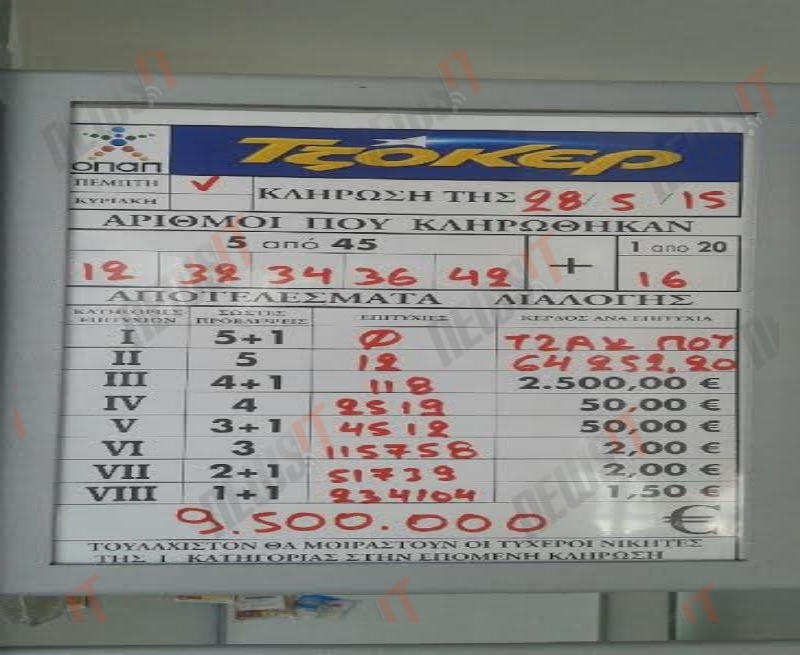 οπαπ
ΤΖΟΚΕΡ
ΠΕΜΠΤΗ ✓
ΚΥΡΙΑΚΗ
ΚΛΗΡΩΣΗ ΤΗΣ 28/5/15
ΑΡΙΘΜΟΙ ΠΟΥ ΚΛΗΡΩΘΗΚΑΝ
5 από 45 1 απο 20
12 32 34 36 42 + 16
ΑΠΟΤΕΛΕΣΜΑΤΑ ΔΙΑΛΟΓΗΣ
ΚΑΤΗΓΟΡΙΕΣ ΕΠΙΤΥΧΙΩΝ ΣΩΣΤΕΣ ΠΡΟΒΛΕΨΕΙΣ ΕΠΙΤΥΧΙΕΣ ΚΕΡΔΟΣ ΑΝΑ ΕΠΙΤΥΧΙΑ
I 5+1 0 ΤΖΑΚ ΠΟΤ
II 5 12 64252.20
III 4+1 118 2.500,00 €
IV 4 2519 50,00 €
V 3+1 4512 50,00 €
VI 3 115758 2,00 €
VII 2+1 51739 2,00 €
VIII 1+1 234104 1,50 €
9.500.000 €
ΤΟΥΛΑΧΙΣΤΟΝ ΘΑ ΜΟΙΡΑΣΤΟΥΝ ΟΙ ΤΥΧΕΡΟΙ ΝΙΚΗΤΕΣ
ΤΗΣ Ι ΚΑΤΗΓΟΡΙΑΣ ΣΤΗΝ ΕΠΟΜΕΝΗ ΚΛΗΡΩΣΗ
NEWSIT